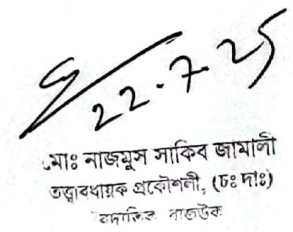 22.7.25
মোঃ নাজমুস সাকিব জামালী
তত্ত্বাবধায়ক প্রকৌশলী, (চঃ দাঃ)